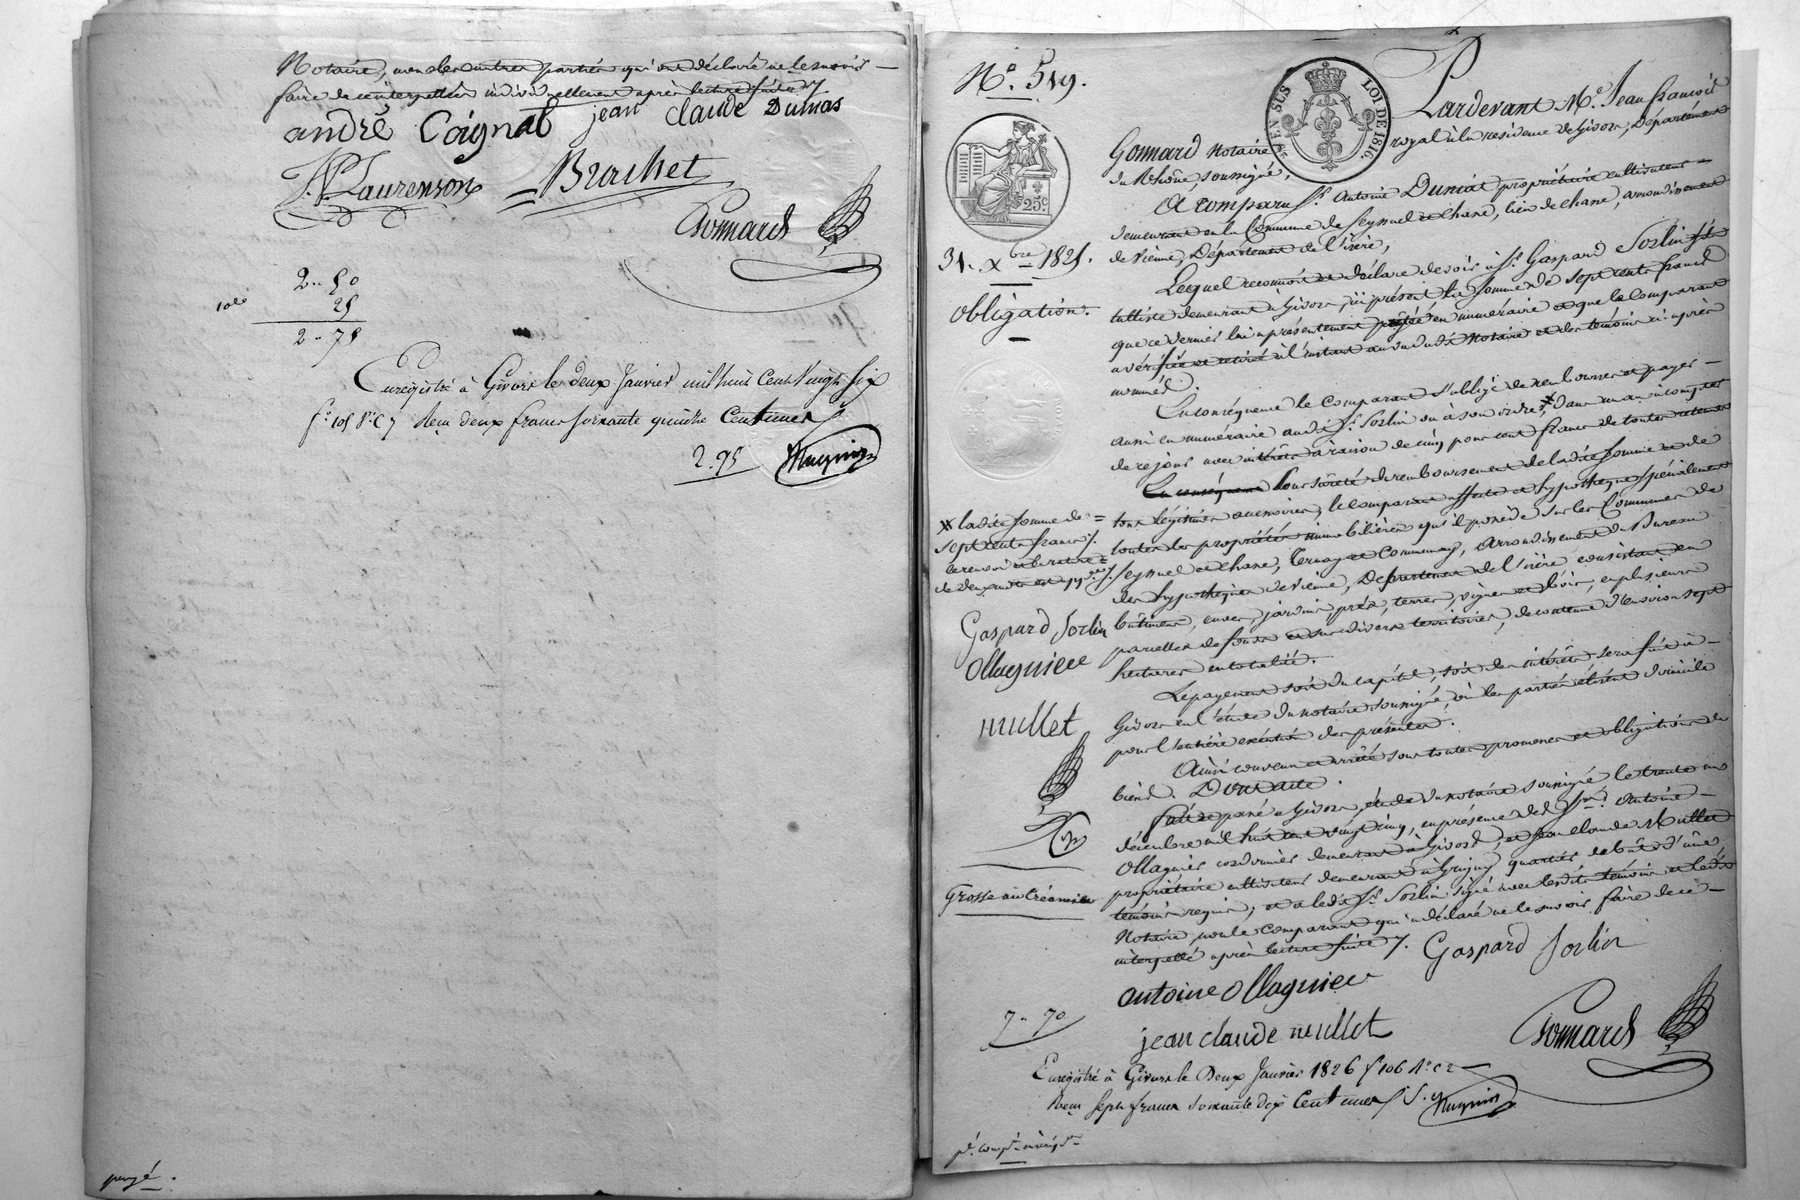 Notaire, non les autres parties qui ont déclaré ne le savoir
faire de ce interpellés individuellement après lecture faite
andré Coignat jean claude Dumas
Laurenson Brachet
Gonnard
2 - 50
25
2 - 75
Enregistré à Givors le deux Janvier mil huit Cent Vingt Six
Reçu deux francs soixante quinze Centimes
2.75
No. 519.
EN SUS LOI DE 1816.
25c
31. Xbre 1825.
Obligation.
Pardevant Me. Jean françois
Gonnard Notaire royal à la résidence de Givors, Département
du Rhône, soussigné,
A comparu Sr. Antoine propriétaire cultivateur
demeurant en la Commune de Seyssuel et Chane, lieu de Chane, arrondissement
de Vienne, Département de l'isère,
Lequel reconnoit et déclare devoir à Sr. Gaspard Sorlin
demeurant à Givors, ici présent la somme de sept cents francs
que ce dernier lui a présentement prêtée en numéraire et que le Comparant
a vérifiée et retirée à l'instant au vu dudit Notaire et des témoins ci-après
nommés.
En conséquence le Comparant s'oblige de rembourser et payer
aussi en numéraire audit Sr. Sorlin ou à son ordre, dans un an à compter
de ce jour avec intérêts à raison de cinq pour cent francs de toutes retenues
En conséquence Pour sûreté du remboursement de ladite somme et de
tous légitimes accessoires, le comparant affecte et hypothèque spécialement
toutes les propriétés immobilières qu'il possède sur les Communes de
Seyssuel et Chane, Ternay et Communay, Arrondissement du Bureau
des hypothèques de Vienne, Département de l'isère consistant en
bâtimens, cours, jardins, prés, terres, vignes et bois, en plusieurs
parcelles de fonds et sur divers territoires, de contenue d'environ sept
hectares en totalité.
Le payement soit du capital, soit des intérêts sera fait à
Givors en l'étude du notaire soussigné, où les parties élisent domicile
pour l'entière exécution des présentes.
Ainsi convenu et arrêté sous toutes promesses et obligations de
biens. Dont acte.
fait et passé à Givors, étude du notaire soussigné le trente un
décembre mil huit cent vingt cinq, en présence des Srs. Antoine
Ollagnier cordonnier demeurant à Givors, et Jean claude Mullet
propriétaire cultivateur demeurant à Grigny quartier
témoins requis; et a ledit Sr. Sorlin signé avec lesdits témoins et ledit
Notaire, non le comparant qui a déclaré ne le savoir faire de ce
interpellé après lecture faite.
* ladite somme de
sept cents francs
Gaspard Sorlin
Ollagniee
mullet
Grosse au Créancier
Gaspard Sorlin
antoine ollagniee
7 - 70
jean claude mullet
Gonnard
Enregistré à Givors le Deux Janvier 1826 f 106
Reçu sept francs soixante dix Centimes